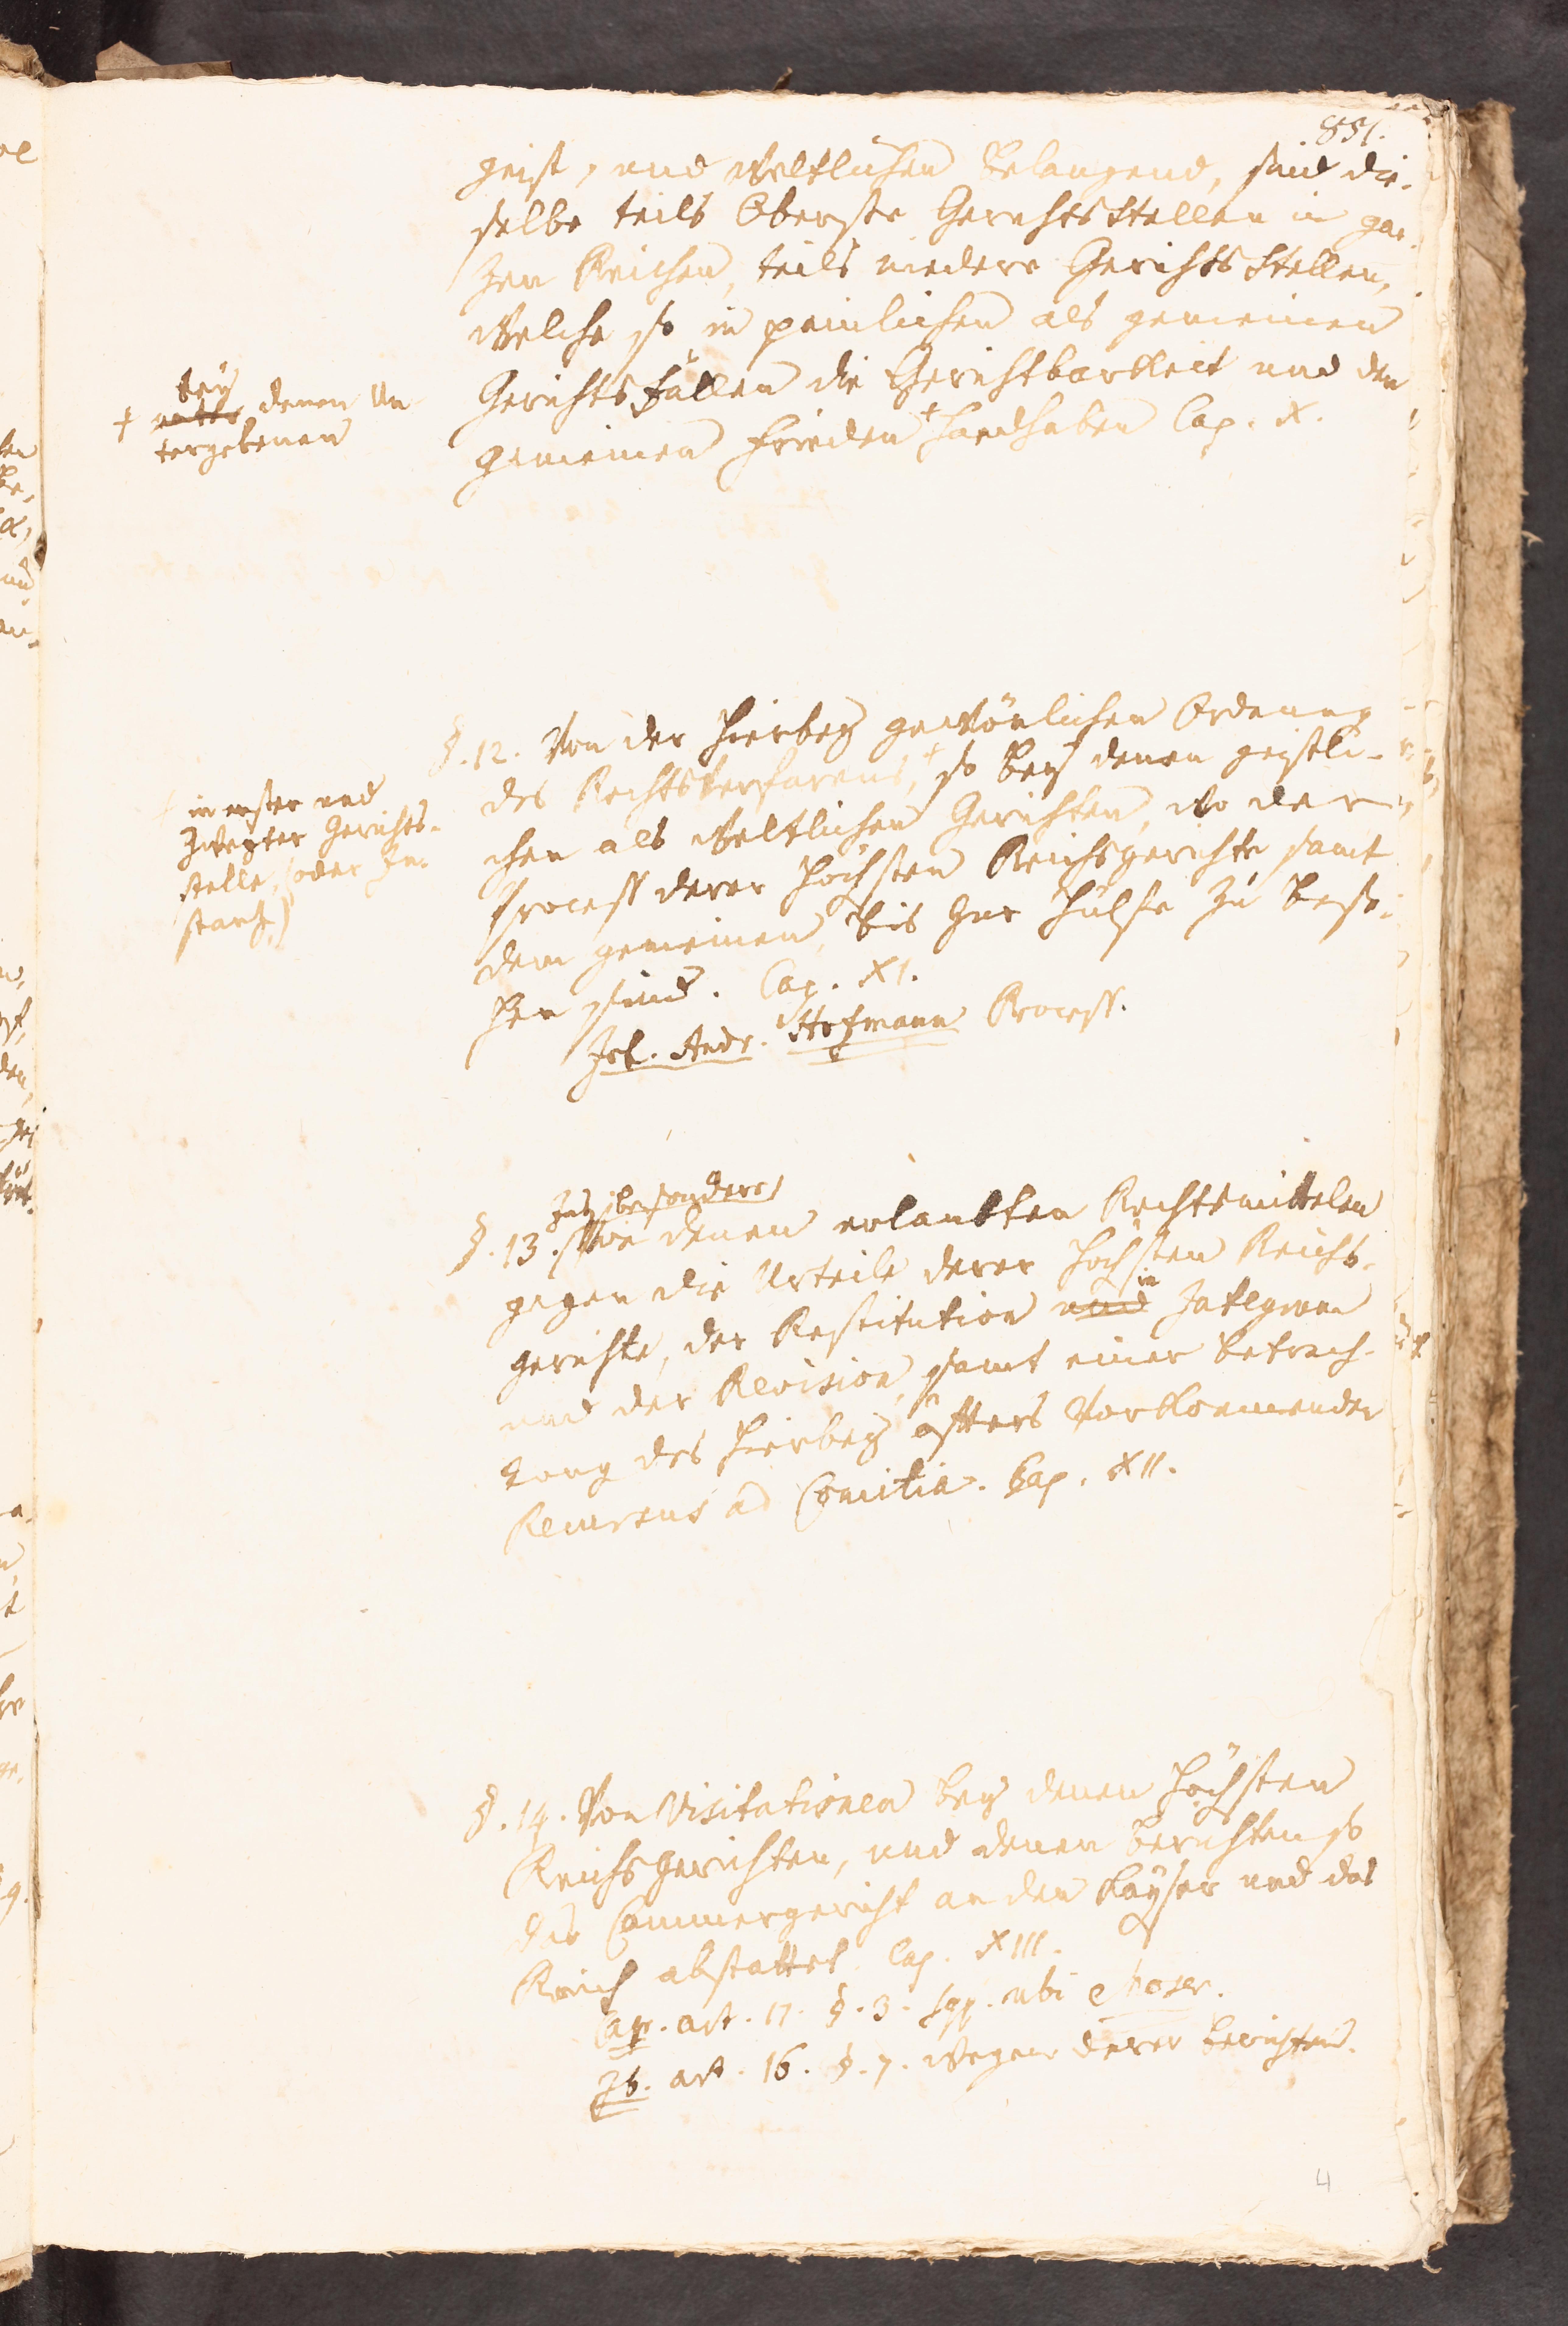 851.
geist, und weltlichen belangend, sind die-
selbe teils Oberste GerichtsStellen in gan-
zen Reichen, teils niedere GerichtsStellen,
welche so in peinlichen als gemeinen
Gerichtsfällen die Gerichtbarkeit und den
gemeinen Frieden + handhaben Cap. X.
+ bey denen Un-
tergebenen
§. 12. Von der hierbey gewönlichen Ordnung
des Rechtsverfarens, + so bey denen geistli-
chen als weltlichen Gerichten, wo der
Process derer höchsten Reichsgerichte samt
dem gemeinen, bis zur Hülfe zu
sind. Cap. XI.
Joh. Andr. Hofmann Process.
+ in erster und
zweyter Gerichts-
stelle, (oder In-
stanz)
Insbesondere
§. 13. Von denen erlaubten Rechtsmittelen
gegen die Urteile derer höchsten Reichs-
gerichte, der Restitution in Integrum
und der Revision, samt einer Betrach-
tung des hierbey öfters vorkommenden
Recursus ad Comitia. Cap. XII.
§. 14. Von Visitationen bey denen höchsten
Reichsgerichten, und denen Berichten so
das Cammergericht an den Kayser und das
Reich abstattet. Cap. XIII.
Cap. art. 17. §. 3. sqq. ubi Moser.
Ib. art. 16. §. 7. wegen derer Berichten.
4